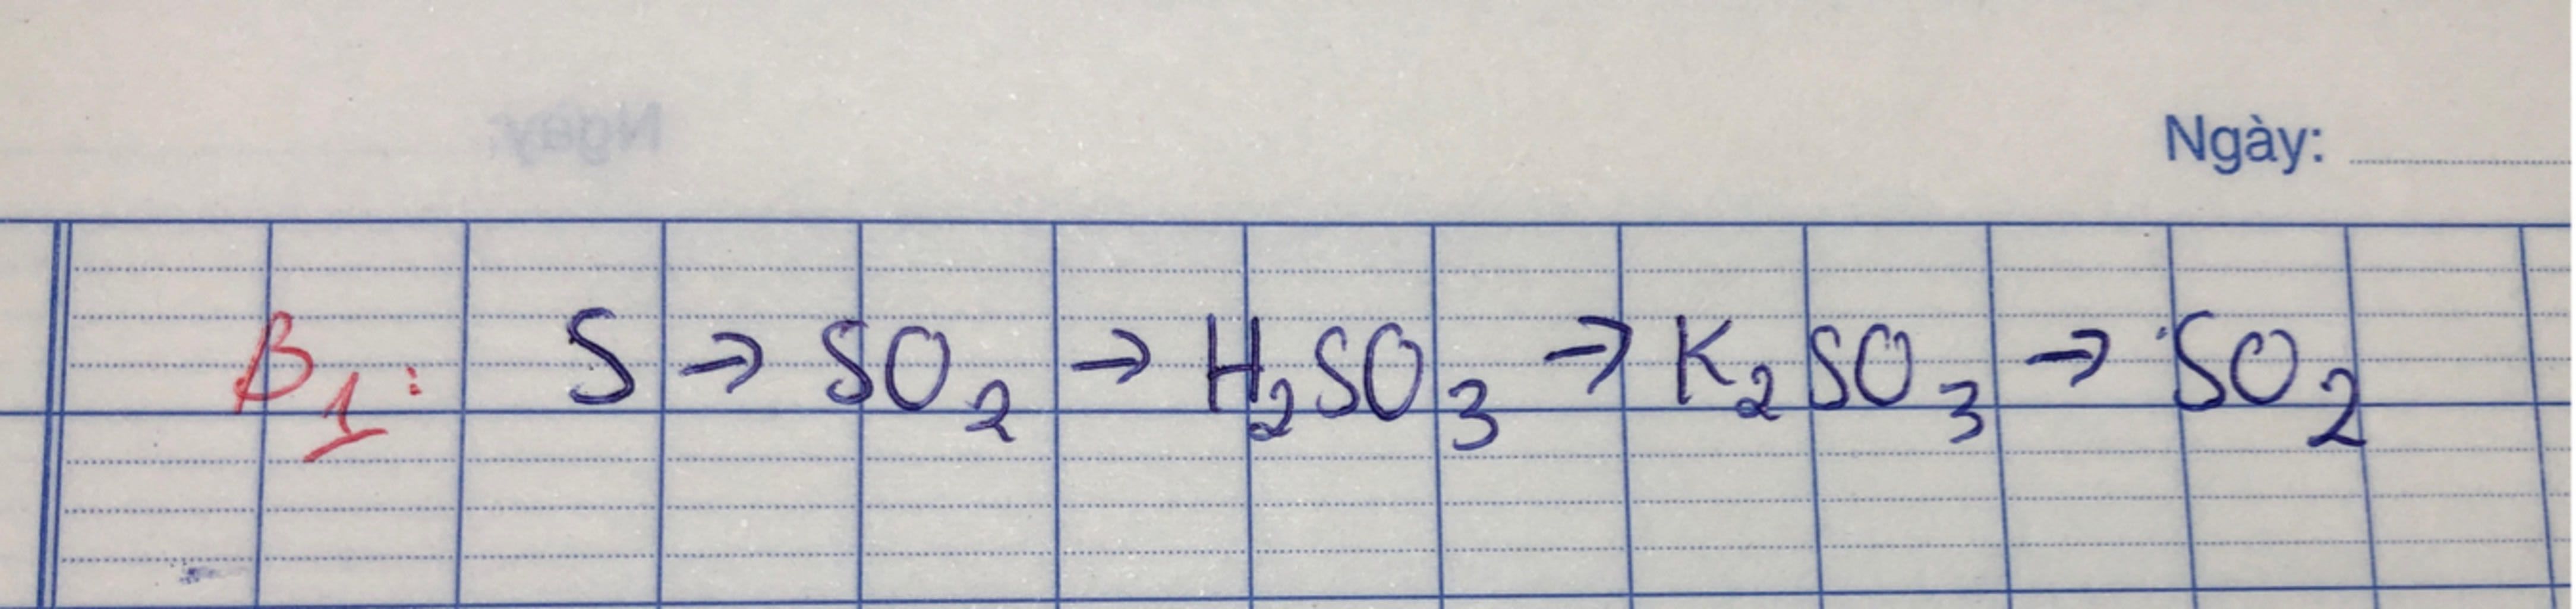 Ngày:
B1: S → SO2 → H2SO3 → K2SO3 → SO2